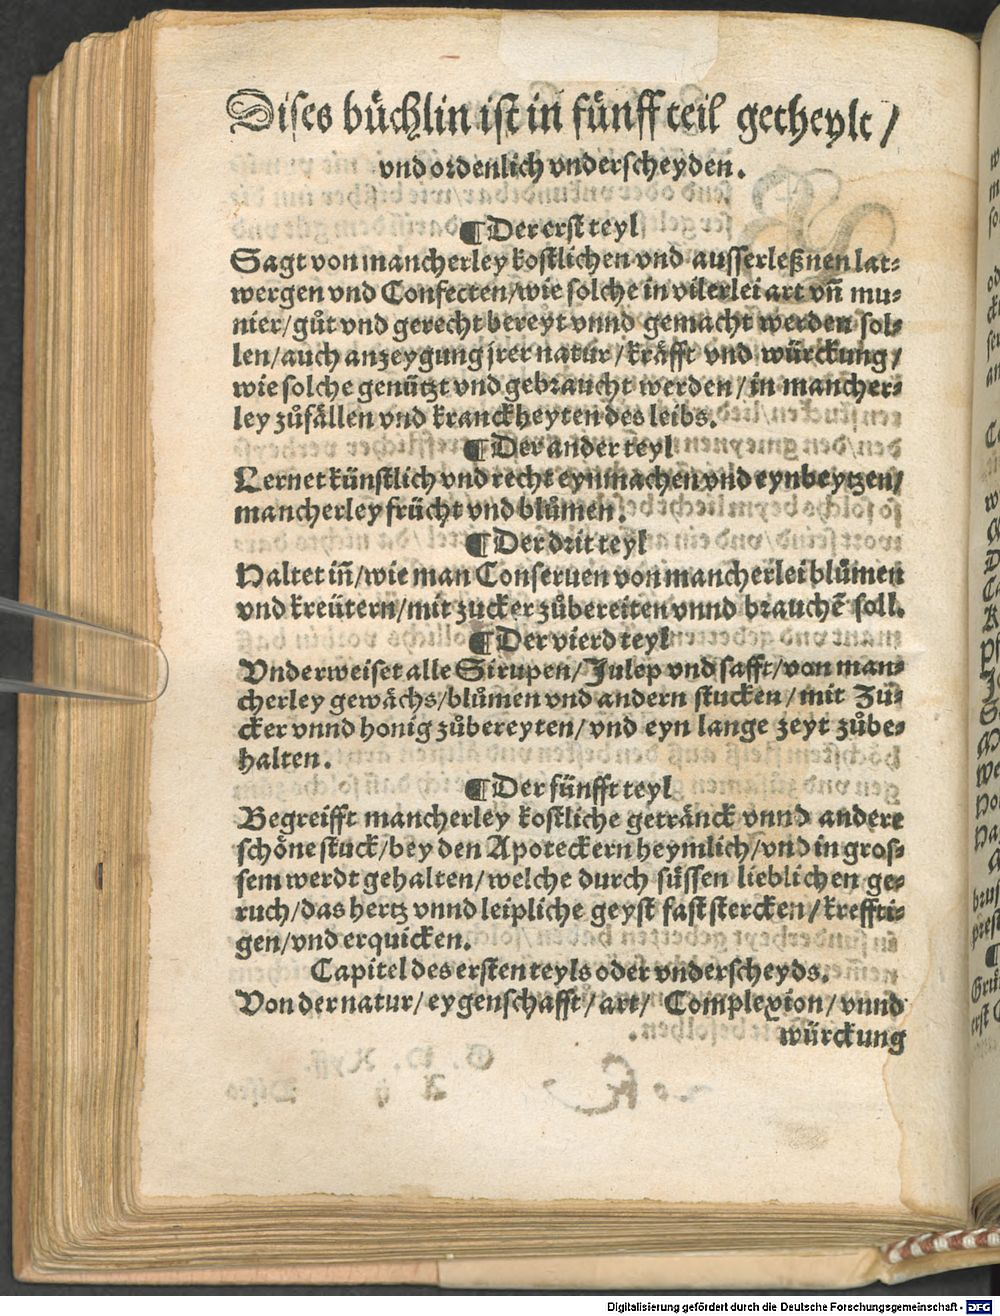 Dises büchlin ist in fünff teil getheylt /
vnd ordenlich vnderscheyden.
¶ Der erst teyl
Sagt von mancherley kostlichen vnd ausserleßnen lat⸗
wergen vnd Confecten / wie solche in vilerlei art vñ mu⸗
nier / gůt vnd gerecht bereyt vnnd gemacht werden sol⸗
len / auch anzeygung jrer natur / kräfft vnd würckung /
wie solche genützt vnd gebraucht werden / in mancher⸗
ley zůfällen vnd kranckheyten des leibs.
¶ Der ander teyl
Lernet künstlich vnd recht eynmachen vnd eynbeytzen /
mancherley frücht vnd blůmen.
¶ Der drit teyl
Haltet iñ / wie man Conseruen von mancherlei blůmen
vnd kreütern / mit zucker zůbereiten vnnd brauchẽ soll.
¶ Der vierd teyl
Vnderweiset alle Sirupen / Julep vnd safft / von man⸗
cherley gewächs / blůmen vnd andern stucken / mit Zu⸗
cker vnnd honig zůbereyten / vnd eyn lange zeyt zůbe⸗
halten.
¶ Der fünfft teyl
Begreifft mancherley kostliche getränck vnnd andere
schöne stuck / bey den Apoteckern heymlich / vnd in gros⸗
sem werdt gehalten / welche durch süssen lieblichen ge⸗
ruch / das hertz vnnd leipliche geyst fast stercken / kreffti⸗
gen / vnd erquicken.
Capitel des ersten teyls oder vnderscheyds.
Von der natur / eygenschafft / art / Complexion / vnnd
würckung
Digitalisierung gefördert durch die Deutsche Forschungsgemeinschaft - DFG